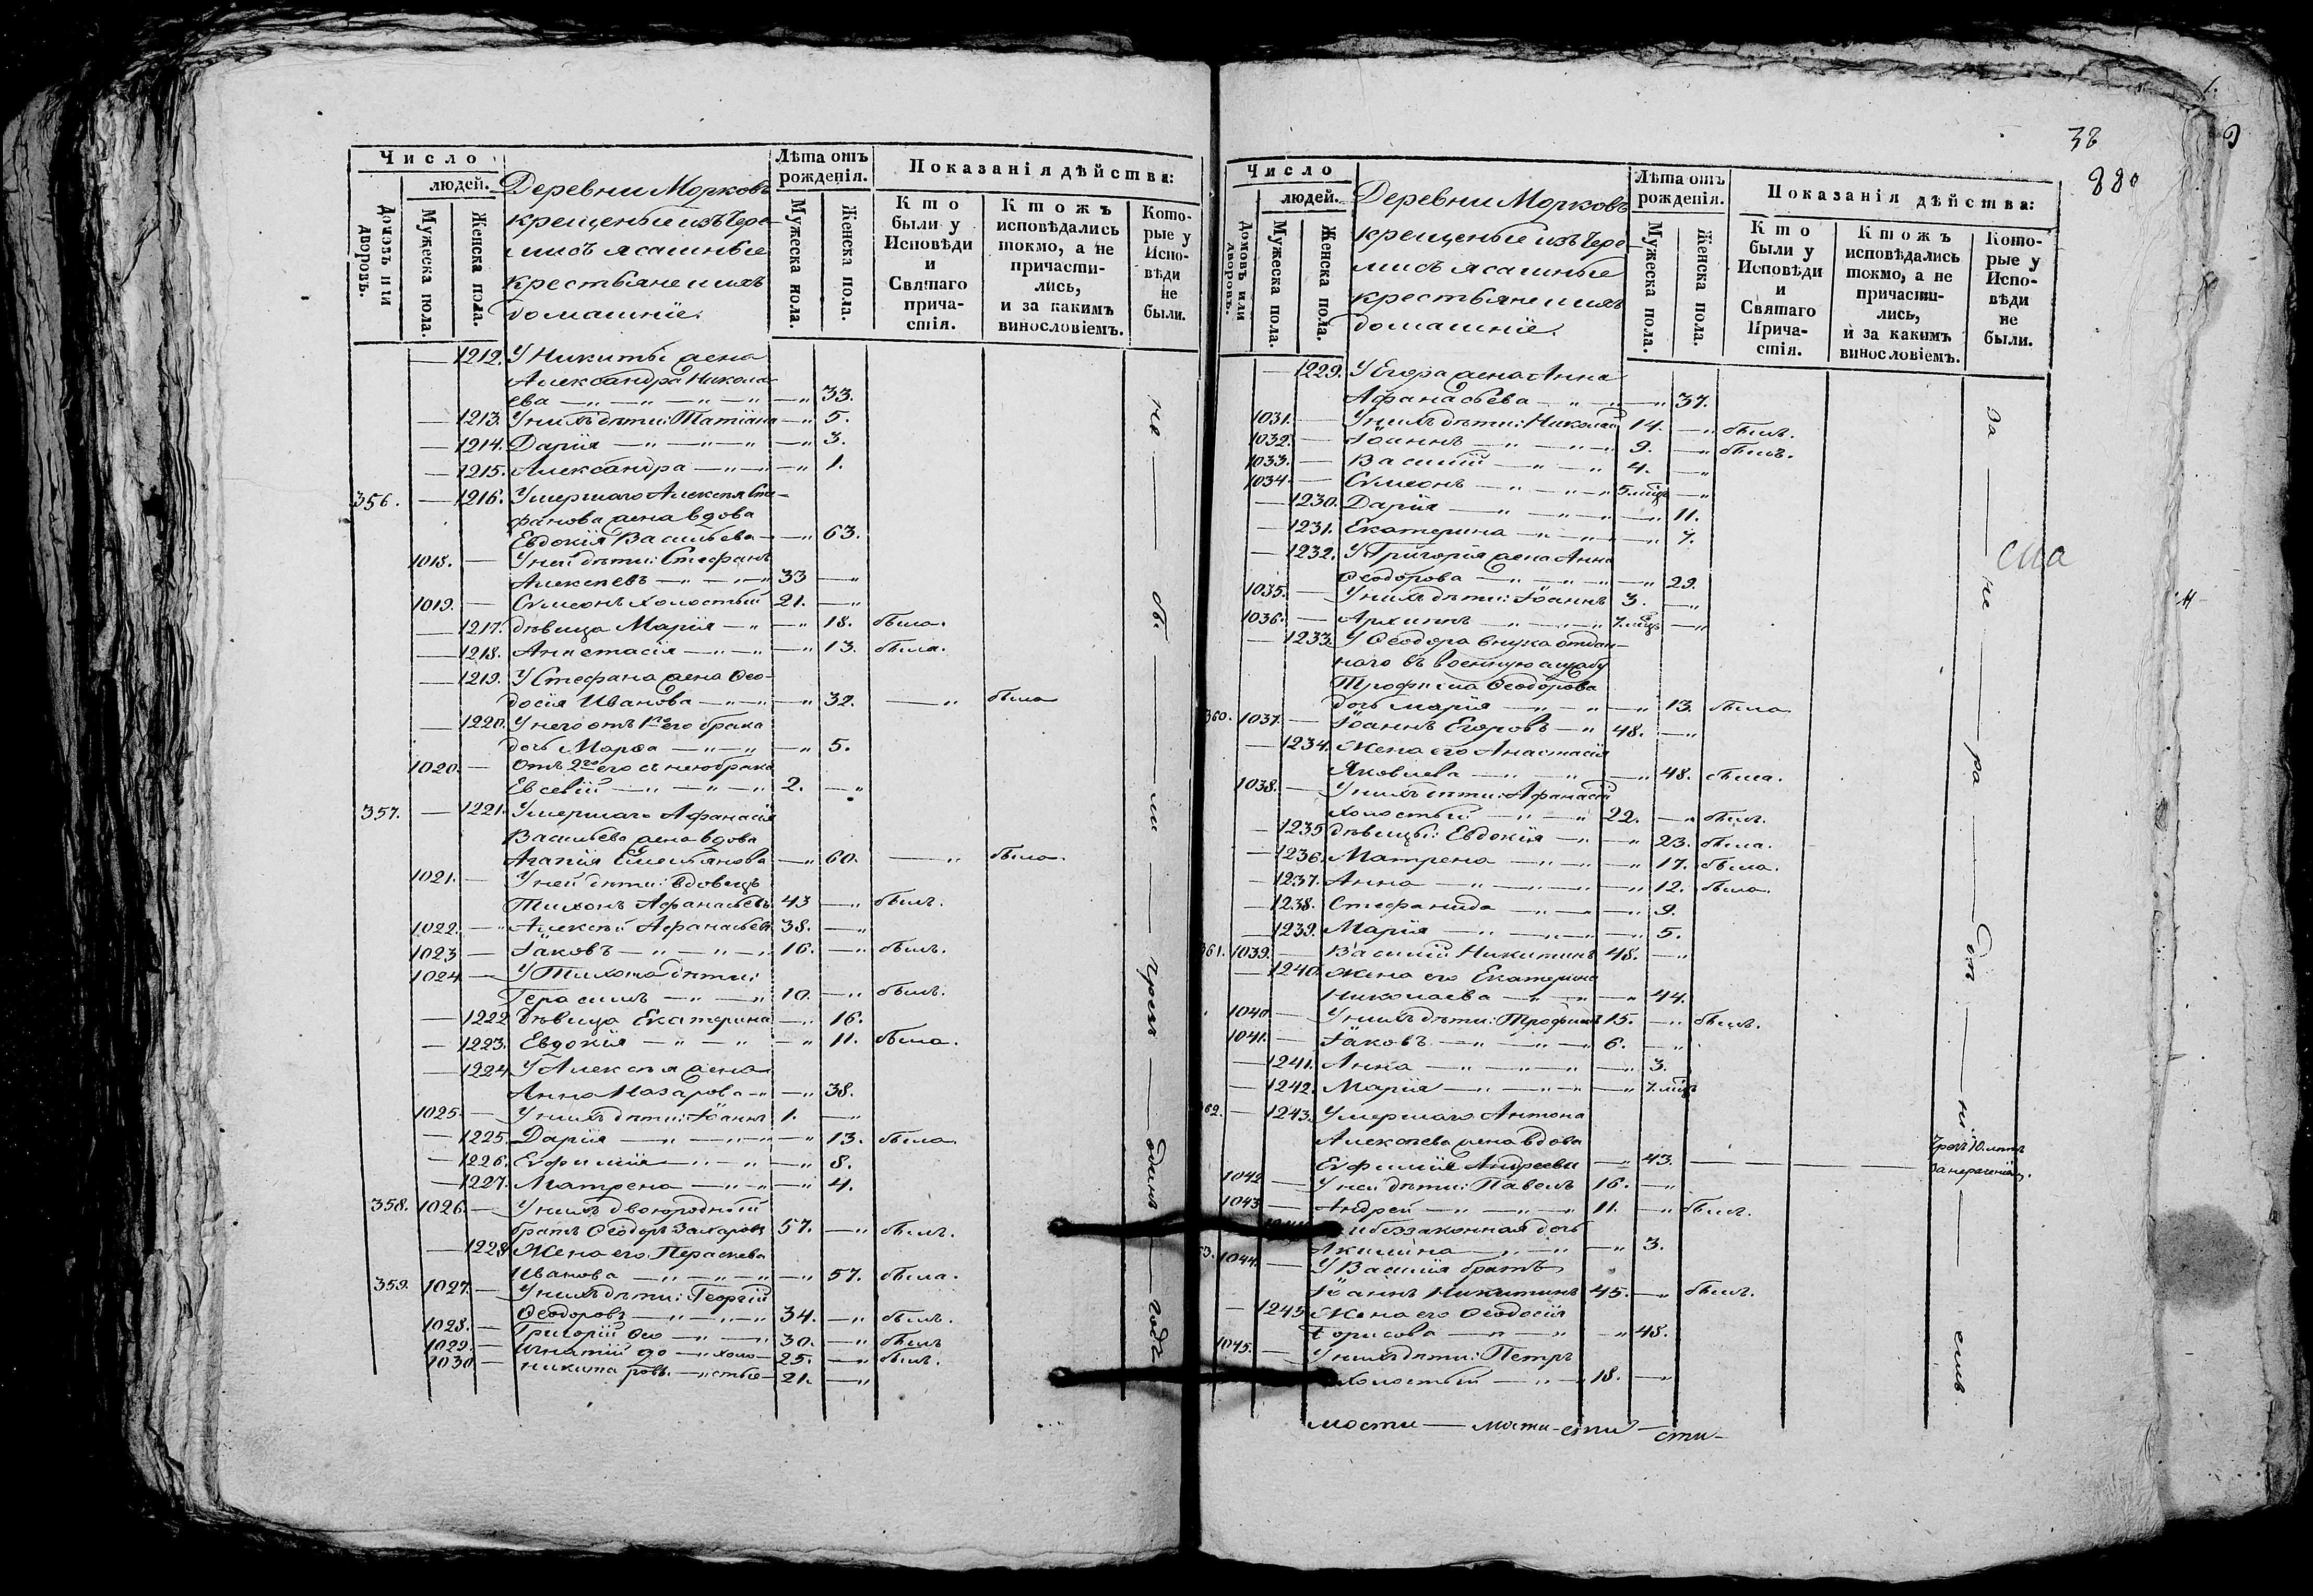 Число
людей.
Домовъ или дворовъ.
Мужеска пола.
Женска пола.
Деревни Морковъ
крещеные изъ Чере-
мисъ ясашные
крестьяне и ихъ
домашніе.
Лѣта отъ рожденія.
Мужеска пола.
Женска пола.
Показанія дѣйства:
Кто были у Исповѣди и Святаго причастія.
Ктожъ исповѣдались токмо, а не причастились, и за какимъ винословіемъ.
Которые у Исповѣди не были.
— 1212. У Никиты жена
Александра Никола-
ева — „ — „ — „ — „ 33.
— 1213. У нихъ дѣти: Татіана — „ 5.
— 1214. Дарія — „ — „ — „ 3.
— 1215. Александра — „ — „ — „ 1.
356. — 1216. Умершаго Алексѣя Сте-
фанова жена вдова
Евдокія Васильева — „ 63.
1018. — У ней дѣти: Стефанъ
Алексѣевъ — „ — „ 33 — „
1019. — Сѵмеонъ холостый 21. — „
— 1217. дѣвица Марія — „ — „ 18. была.
— 1218. Анастасія — „ — „ — „ 13. была.
— 1219. У Стефана жена Ѳео-
досія Иванова — „ — „ 32. — „ была
— 1220. У него отъ 1го его брака
дочь Марѳа — „ — „ — „ 5.
1020. — Отъ 2го его съ нею брака
Евсевій — „ — „ — „ 2. — „
357. — 1221. Умершаго Афанасія
Васильева жена вдова
Агапія Емельянова — „ 60. — „ была.
1021. — У ней дѣти: вдовецъ
Тихонъ Афанасьевъ 43 — „ былъ.
1022. — Алексѣй Афанасьевъ 38. — „
1023 — Іаковъ — „ — „ — „ 16. — „ былъ.
1024 — У Тихона дѣти:
Герасимъ — „ — „ 10. — „ былъ.
— 1222 Дѣвица Екатерина — „ 16.
— 1223. Евдокія — „ — „ — „ 11. была.
— 1224 У Алексѣя жена
Анна Назарова — „ — „ 38.
1025. — У нихъ дѣти: Іоаннъ 1. — „
— 1225. Дарія — „ — „ — „ 13. была.
— 1226. Евфимія — „ — „ — „ 8.
— 1227. Матрена — „ — „ — „ 4.
358. 1026. — У нихъ двоюродный
братъ Ѳеодоръ Захаровъ 57. — „ былъ.
— 1228 Жена его Параскева
Иванова — „ — „ — „ 57. была.
359. 1027. — У нихъ дѣти: Георгій
Ѳеодоровъ — „ — „ 34. — „ былъ.
1028. — Григорій Ѳео — „ — „ 30. — „ былъ
1029. — Игнатій до — „ холо- 25. — „ былъ.
1030 — Никита ровы. — „ стые 21. — „
не — бы — ли — чрезъ — одинъ — годъ
38
880
Число
людей.
Домовъ или дворовъ.
Мужеска пола.
Женска пола.
Деревни Морковъ
крещеные изъ Чере-
мисъ ясашные
крестьяне и ихъ
домашніе.
Лѣта отъ рожденія.
Мужеска пола.
Женска пола.
Показанія дѣйства:
Кто были у Исповѣди и Святаго Причастія.
Ктожъ исповѣдались токмо, а не причастились, и за какимъ винословіемъ.
Которые у Исповѣди не были.
— 1229. У Егора жена Анна
Афанасьева — „ — „ 37.
1031. — У нихъ дѣти: Николай 14. — „ былъ.
1032. — Іоаннъ — „ — „ 9. — „ былъ.
1033. — Василій — „ — „ 4. — „
1034. — Сѵмеонъ — „ — „ 5. мѣц. — „
— 1230. Дарія — „ — „ — „ 11.
— 1231. Екатерина — „ — „ — „ 7.
— 1232. У Григорія жена Анна
Ѳеодорова — „ — „ — „ 29.
1035. — У нихъ дѣти: Іоаннъ 3. — „
1036. — Архипъ — „ — „ 7. мѣц. — „
— 1233. У Ѳеодора внука отдан-
наго въ военную службу
Трофима Ѳеодорова
дочь Марія — „ — „ — „ 13. была.
360. 1037. — Іоаннъ Егоровъ — „ 48. — „
— 1234. Жена его Анастасія
Яковлева — „ — „ — „ 48. была.
1038. — У нихъ дѣти: Афанасій
холостый — „ — „ 22. — „ былъ.
— 1235 дѣвицы: Евдокія — „ — „ 23. была.
— 1236. Матрена — „ — „ — „ 17. была.
— 1237. Анна — „ — „ — „ 12. была.
— 1238. Стефанида — „ — „ 9.
— 1239. Марія — „ — „ — „ 5.
361. 1039. — Василій Никитинъ 48. — „
— 1240. Жена его Екатерина
Николаева — „ — „ — „ 44.
1040. — У нихъ дѣти: Трофимъ 15. — „ былъ.
1041. — Іаковъ — „ — „ — „ 6. — „
— 1241. Анна — „ — „ — „ 3.
— 1242. Марія — „ — „ — „ 7. мѣц.
362. — 1243. Умершаго Антона
Алексѣева жена вдова
Евфимія Андреева — „ 43. — — — Чрезъ 10. лѣтъ за нераченіемъ.
1042 — У ней дѣти: Павелъ 16. — „
1043 — Андрей — „ — „ — „ 11. — „ былъ.
и беззаконная дочь
Акилина — „ — „ — „ 3.
1044. — У Василія братъ
Іоаннъ Никитинъ 45. — „ былъ.
— 1245 Жена его Ѳеодосія
Борисова — „ — „ — „ 48.
1045. — У нихъ дѣти: Петръ
холостый — „ — „ 18. — „
за — не — ра — дѣ — ні — емъ.
мости — мости — сти — сти —